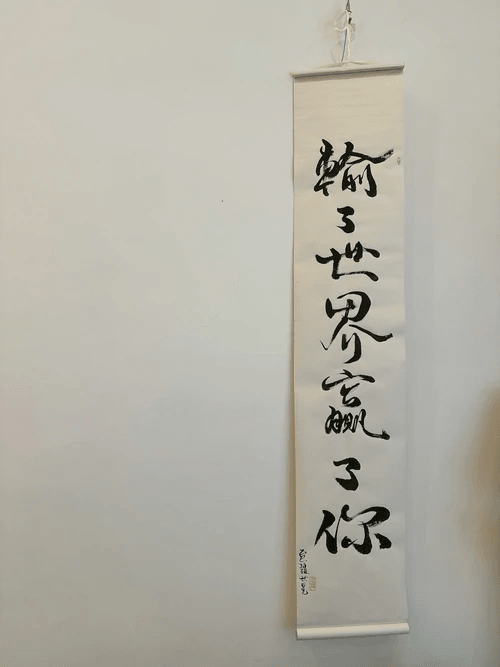 輸了世界贏了你